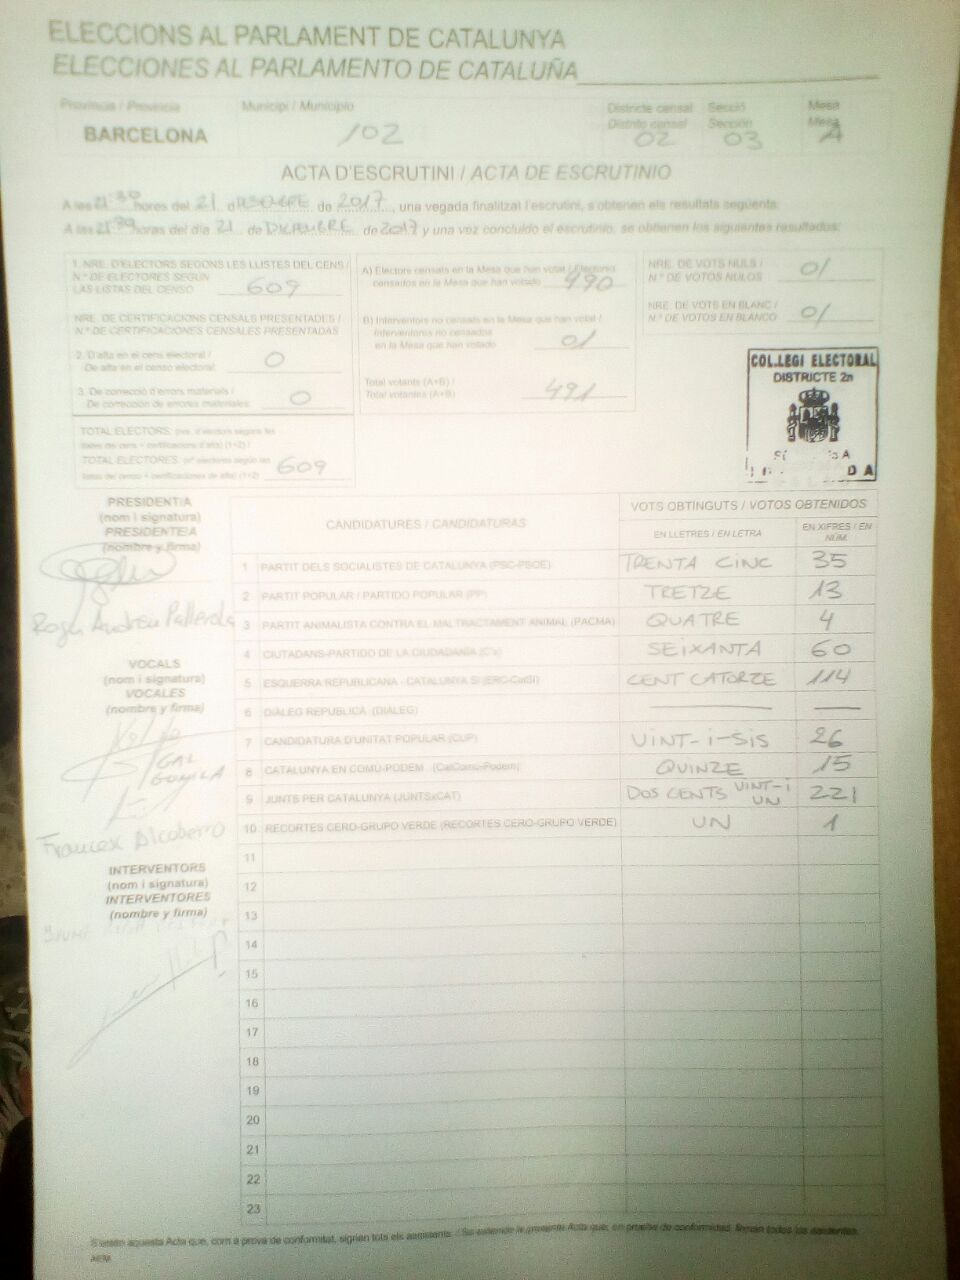 ELECCIONS AL PARLAMENT DE CATALUNYA
ELECCIONES AL PARLAMENTO DE CATALUÑA
Província / Provincia
Municipi / Municipio
Districte censal
Distrito censal
Secció
Sección
Mesa
Mesa
BARCELONA
102
02
03
A
ACTA D'ESCRUTINI / ACTA DE ESCRUTINIO
A les 21:30 hores del 21 de de 2017, una vegada finalitzat l'escrutini, s'obtenen els resultats següents:
A las 21:30 horas del día 21 de DICIEMBRE de 2017 y una vez concluido el escrutinio, se obtienen los siguientes resultados:
1. NRE. D'ELECTORS SEGONS LES LLISTES DEL CENS /
N.º DE ELECTORES SEGÚN
LAS LISTAS DEL CENSO 609
NRE. DE CERTIFICACIONS CENSALS PRESENTADES /
N.º DE CERTIFICACIONES CENSALES PRESENTADAS
2. D'alta en el cens electoral /
De alta en el censo electoral: 0
3. De correcció d'errors materials /
De corrección de errores materiales: 0
TOTAL ELECTORS: (nre. d'electors segons les
llistes del cens + certificacions d'alta) (1+2) /
TOTAL ELECTORES: (nº electores según las
listas del censo + certificaciones de alta) (1+2) 609
A) Electors censats en la Mesa que han votat / Electores
censados en la Mesa que han votado 490
B) Interventors no censats en la Mesa que han votat /
Interventores no censados
en la Mesa que han votado 01
Total votants (A+B) /
Total votantes (A+B) 491
NRE. DE VOTS NULS /
N.º DE VOTOS NULOS 01
NRE. DE VOTS EN BLANC /
N.º DE VOTOS EN BLANCO 01
COL.LEGI ELECTORAL
DISTRICTE 2n
PRESIDENT/A
(nom i signatura)
PRESIDENTE/A
(nombre y firma)
Roger Andreu Pallerola
VOCALS
(nom i signatura)
VOCALES
(nombre y firma)
GAL
GOMILA
Francesc Alcoberro
INTERVENTORS
(nom i signatura)
INTERVENTORES
(nombre y firma)
CANDIDATURES / CANDIDATURAS
VOTS OBTINGUTS / VOTOS OBTENIDOS
EN LLETRES / EN LETRA
EN XIFRES / EN
NÚM.
1 PARTIT DELS SOCIALISTES DE CATALUNYA (PSC-PSOE) TRENTA CINC 35
2 PARTIT POPULAR / PARTIDO POPULAR (PP) TRETZE 13
3 PARTIT ANIMALISTA CONTRA EL MALTRACTAMENT ANIMAL (PACMA) QUATRE 4
4 CIUTADANS-PARTIDO DE LA CIUDADANÍA (C's) SEIXANTA 60
5 ESQUERRA REPUBLICANA - CATALUNYA SÍ (ERC-CatSí) CENT CATORZE 114
6 DIÀLEG REPUBLICÀ (DIÀLEG)
7 CANDIDATURA D'UNITAT POPULAR (CUP) VINT-I-SIS 26
8 CATALUNYA EN COMÚ-PODEM (CatComú-Podem) QUINZE 15
9 JUNTS PER CATALUNYA (JUNTSxCAT) DOS CENTS VINT-I UN 221
10 RECORTES CERO-GRUPO VERDE (RECORTES CERO-GRUPO VERDE) UN 1
11
12
13
14
15
16
17
18
19
20
21
22
23
S'estén aquesta Acta que, com a prova de conformitat, signen tots els assistents. / Se extiende la presente Acta que, en prueba de conformidad, firman todos los asistentes.